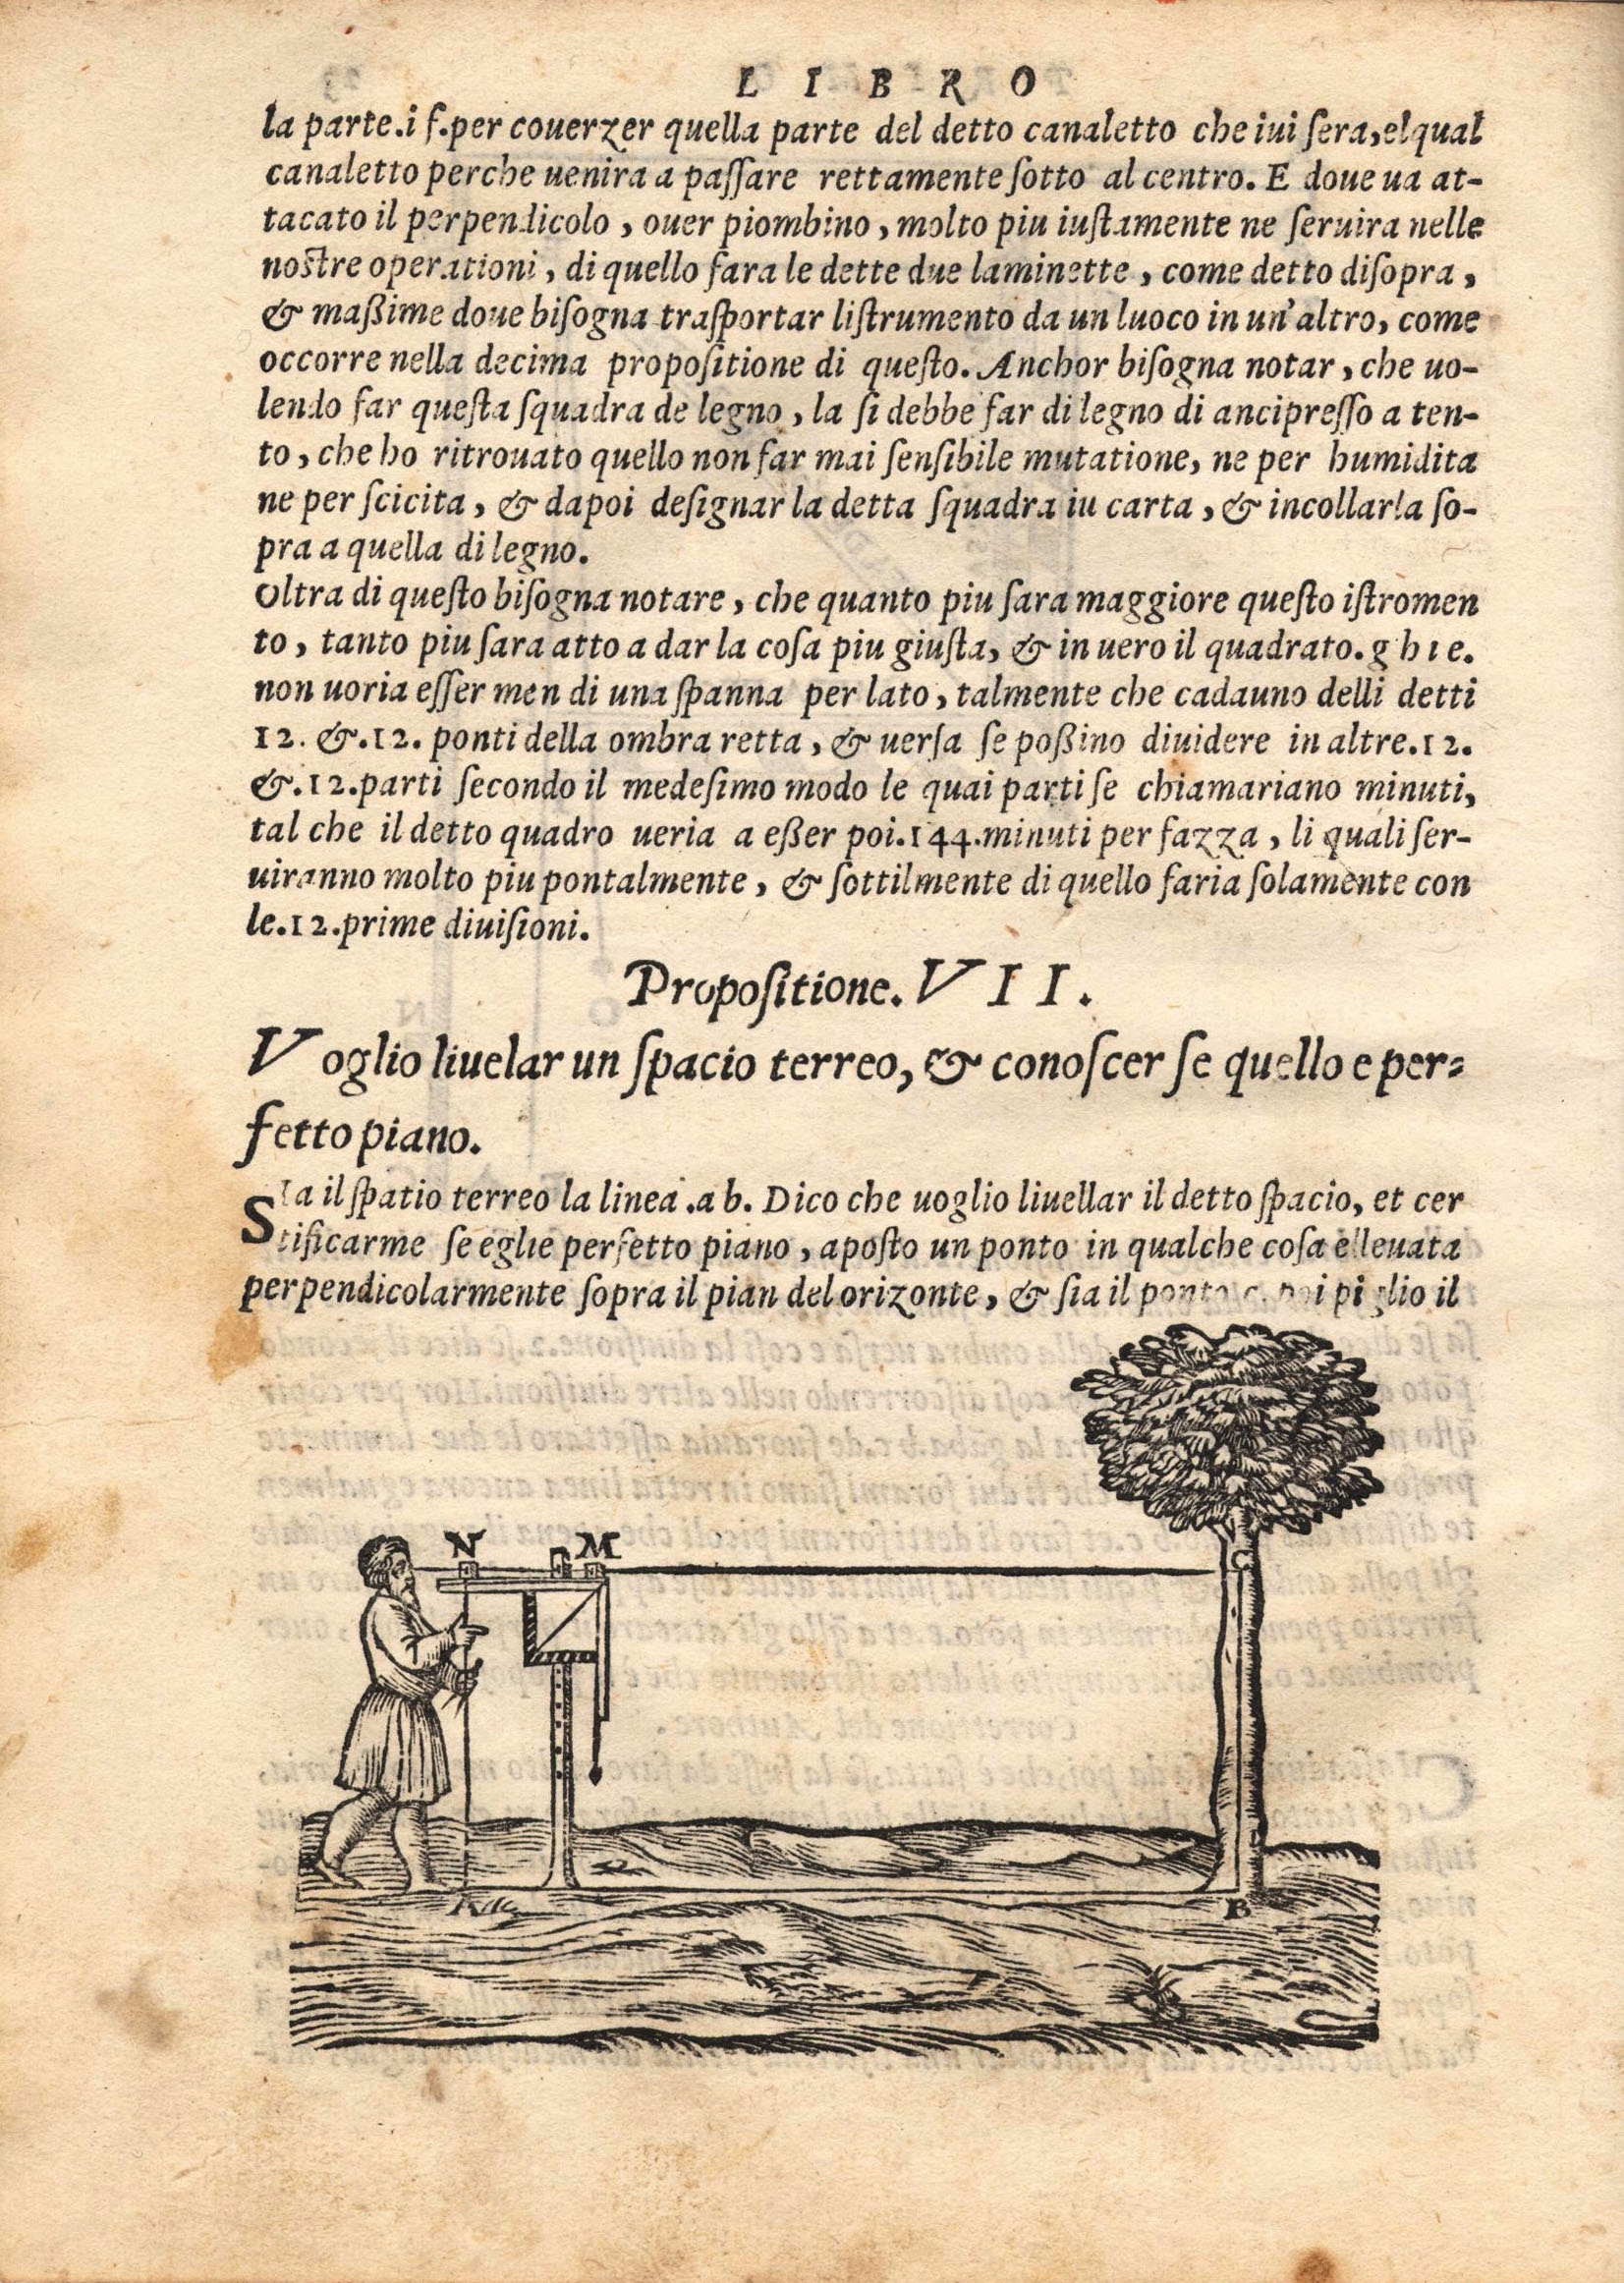 LIBRO
la parte.i f.per couerzer quella parte del detto canaletto che iui ſera,elqual
canaletto perche uenira a paſſare rettamente ſotto al centro. E doue ua at-
tacato il perpendicolo , ouer piombino , molto piu iuſtamente ne ſeruira nelle
noſtre operationi , di quello fara le dette due laminette , come detto diſopra ,
& maßime doue biſogna traſportar liſtrumento da un luoco in un'altro, come
occorre nella decima propoſitione di queſto. Anchor biſogna notar , che uo-
lendo far queſta ſquadra de legno , la ſi debbe far di legno di ancipreſſo a ten-
to , che ho ritrouato quello non far mai ſenſibile mutatione, ne per humidita
ne per ſcicita , & dapoi deſignar la detta ſquadra iu carta , & incollarla ſo-
pra a quella di legno.
Oltra di queſto biſogna notare , che quanto piu ſara maggiore queſto iſtromen
to , tanto piu ſara atto a dar la coſa piu giuſta, & in uero il quadrato. g h i e.
non uoria eſſer men di una ſpanna per lato , talmente che cadauno delli detti
12. &.12. ponti della ombra retta , & uerſa ſe poßino diuidere in altre.12.
&.12.parti ſecondo il medeſimo modo le quai parti ſe chiamariano minuti,
tal che il detto quadro ueria a eßer poi.144.minuti per fazza , li quali ſer-
uiranno molto piu pontalmente , & ſottilmente di quello faria ſolamente con
le.12.prime diuiſioni.
Propoſitione. VII.
Voglio liuelar un ſpacio terreo, & conoſcer ſe quello e per-
fetto piano.
Sia il ſpatio terreo la linea .a b. Dico che uoglio liuellar il detto ſpacio, et cer
tificarme ſe eglie perfetto piano , apoſto un ponto in qualche coſa elleuata
perpendicolarmente ſopra il pian del orizonte , & ſia il ponto c. poi piglio il
N M
C
A
B